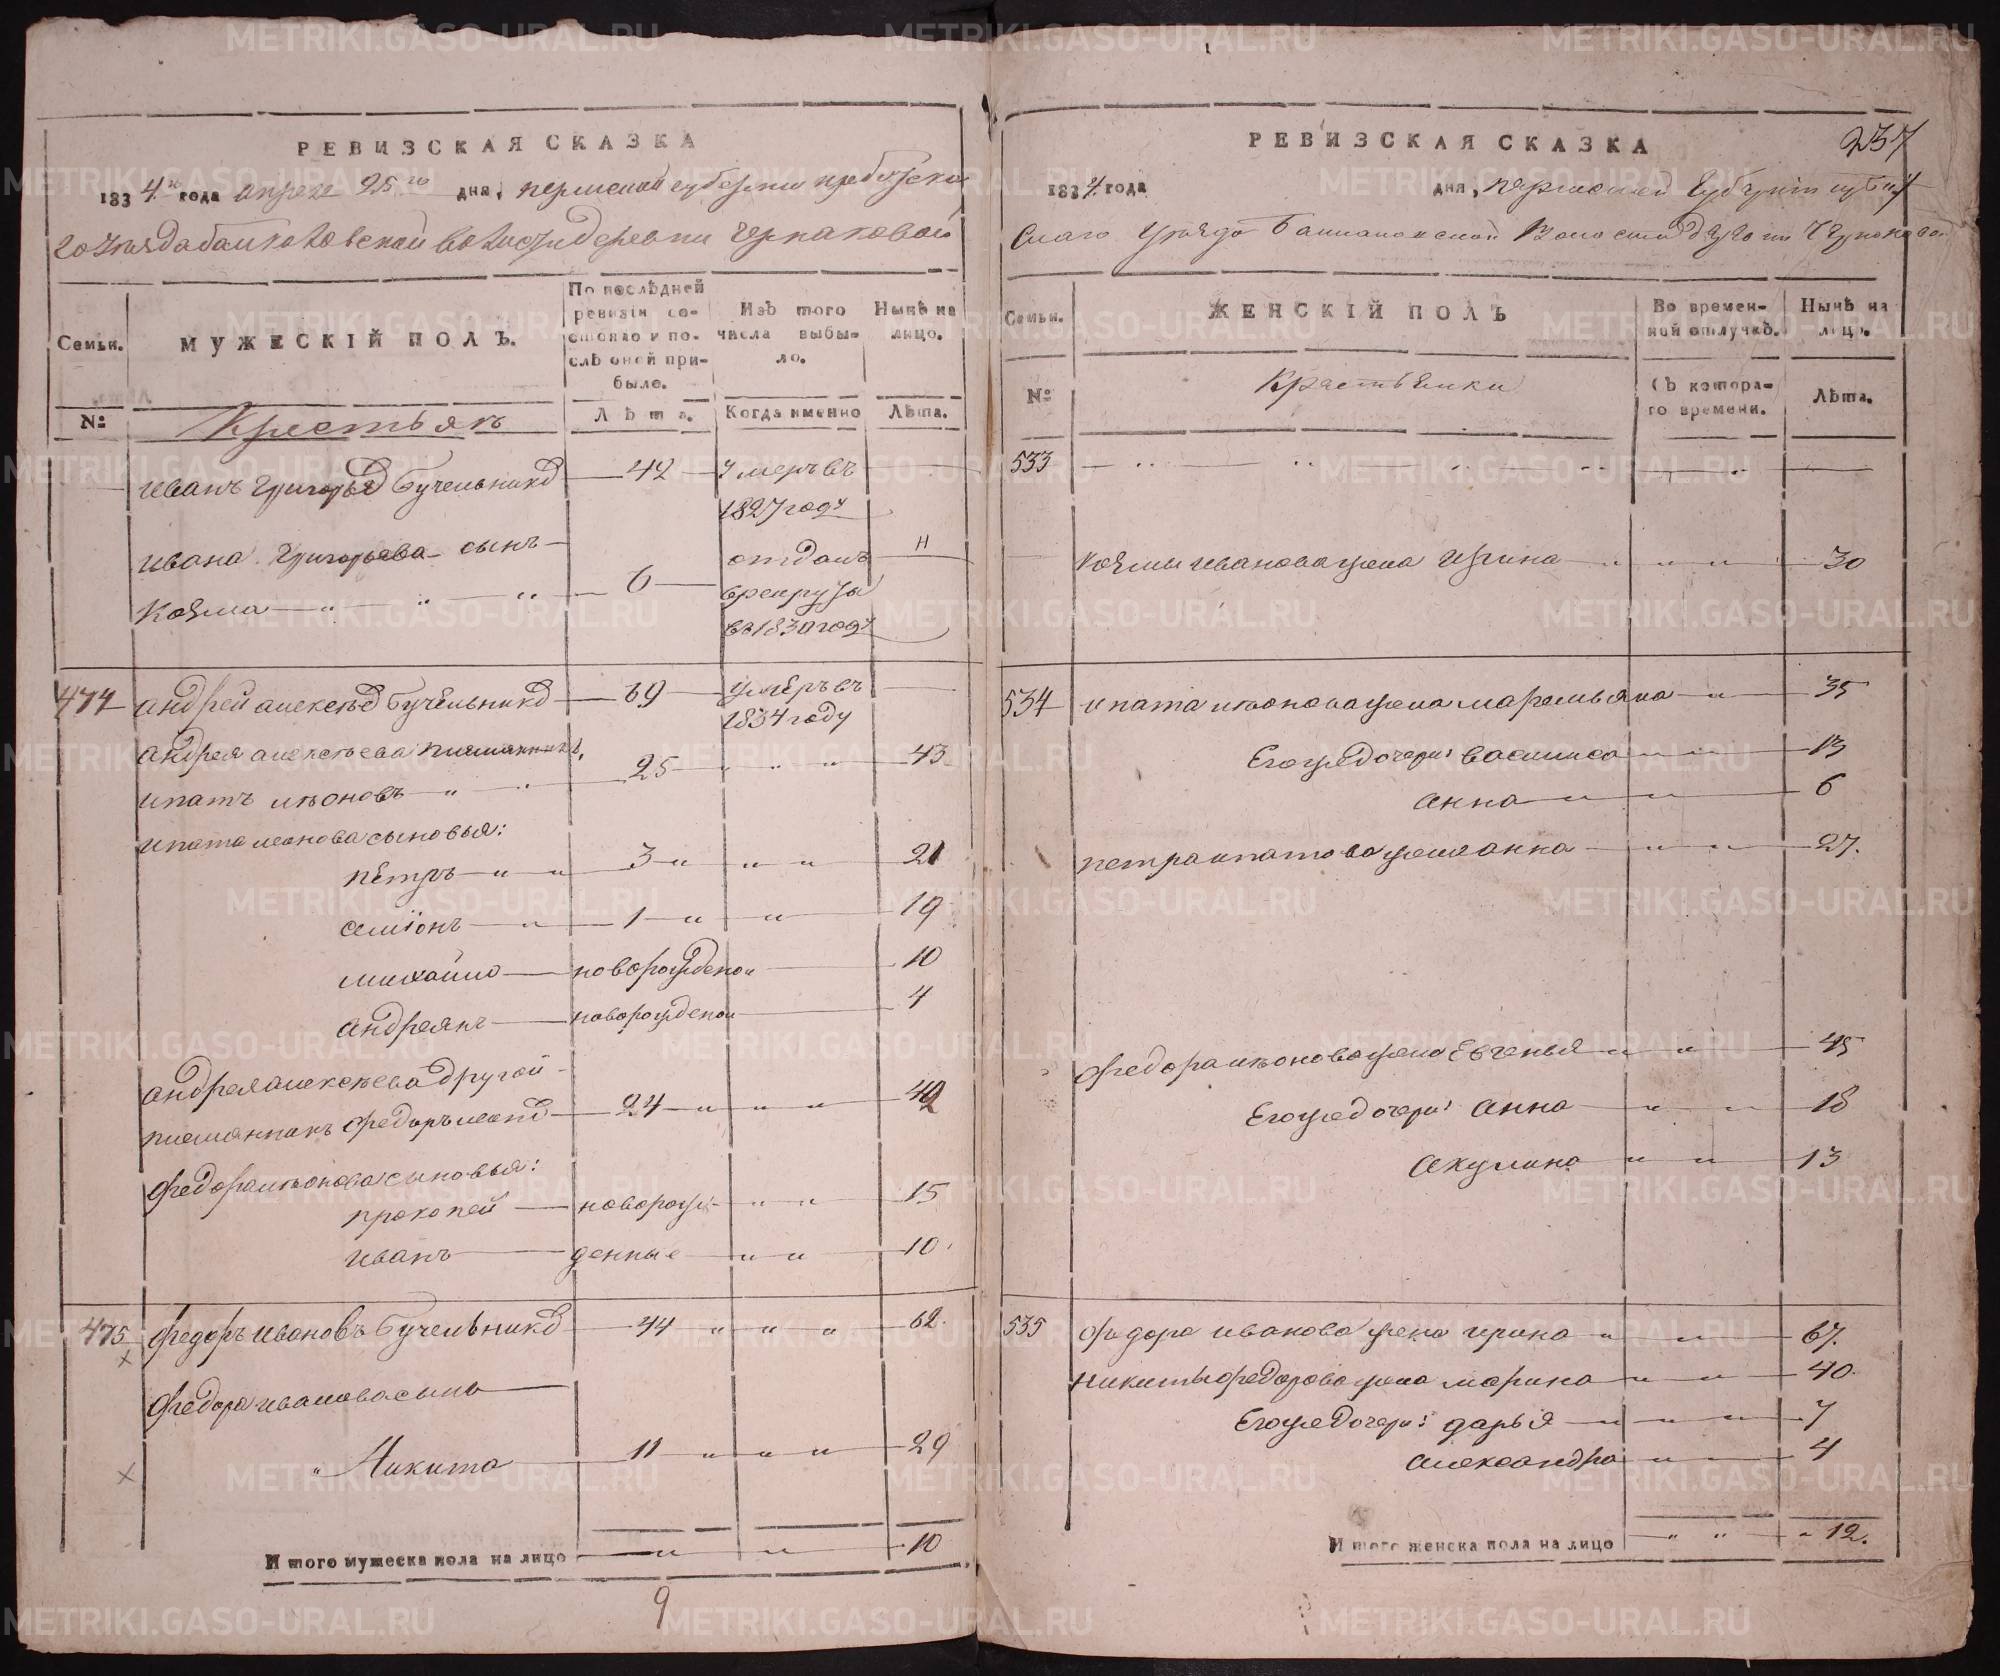 РЕВИЗСКАЯ СКАЗКА
1834го года апреля 25го дня, пермской губернии ирбитска
го уезда башкановской волости деревни
Семьи. МУЖЕСКІЙ ПОЛЪ. По послѣдней ревизіи состояло и послѣ оной прибыло. Изъ того числа выбыло. Нынѣ на лицо.
№: Крестьянъ Лѣта. Когда именно Лѣта.
иванъ григорьевъ Бучельниковъ 42 Умеръ въ
1827 году
ивана григорьева сынъ отданъ
козма 6 врекруты
въ 1830 году
474 андрей алексѣевъ Бучельниковъ 69 умеръ въ
1834 году
андрея алексѣева племянникъ,
ипатъ лѣоновъ 25 43
ипата леонова сыновья:
пётръ 3 21
семіонъ 1 19
михайло новорожденой 10
андреянъ новорожденой 4
андрея алексѣева другой
племянникъ федоръ леоновъ 24 42
федора лѣонова сыновья:
прокопей новорож 15
иванъ денные 10
475 федоръ ивановъ Бучельниковъ 44 62
федора иванова сынъ
Никита 11 29
Итого мужеска пола на лицо 10
9
РЕВИЗСКАЯ СКАЗКА 237
1834 года дня, пермской Губерніи ирбит
скаго Уѣзда Башкановской Волости деревни
Семьи. ЖЕНСКІЙ ПОЛЪ Во временной отлучкѣ. Нынѣ на лицо.
№: Крестьянки Съ которого времени. Лѣта.
533
козмы иванова жена ирина 30
534 ипата лѣонова жена маремьяна 35
Егоже дочери: василиса 13
анна 6
петра ипатова жена анна 27.
федора лѣонова жена Евгенья 45
Егоже дочери: анна 18
акулина 13
535 федора иванова жена ирина 67.
никиты федорова жена марина 40.
Егоже дочери: дарья 7
александра 4
Итого женска пола на лицо 12.
METRIKI.GASO-URAL.RU